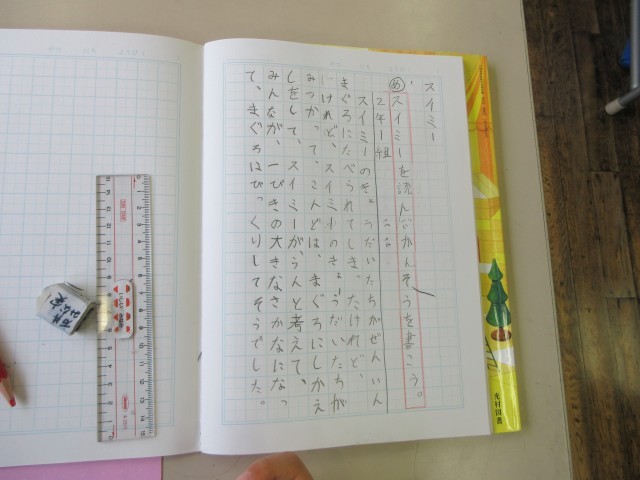 スイミー
め スイミーを読んでかんそうを書こう。
2年1組
スイミーのきょうだいたちがぜんいん
まぐろにたべられてしまった。けれど、
みつかって、こんどは、まぐろにしかえ
しをして、スイミーが、うんと考えて、
みんなが、一びきの大きなさかなになっ
て、まぐろはびっくりしてそうでした。
光村図書